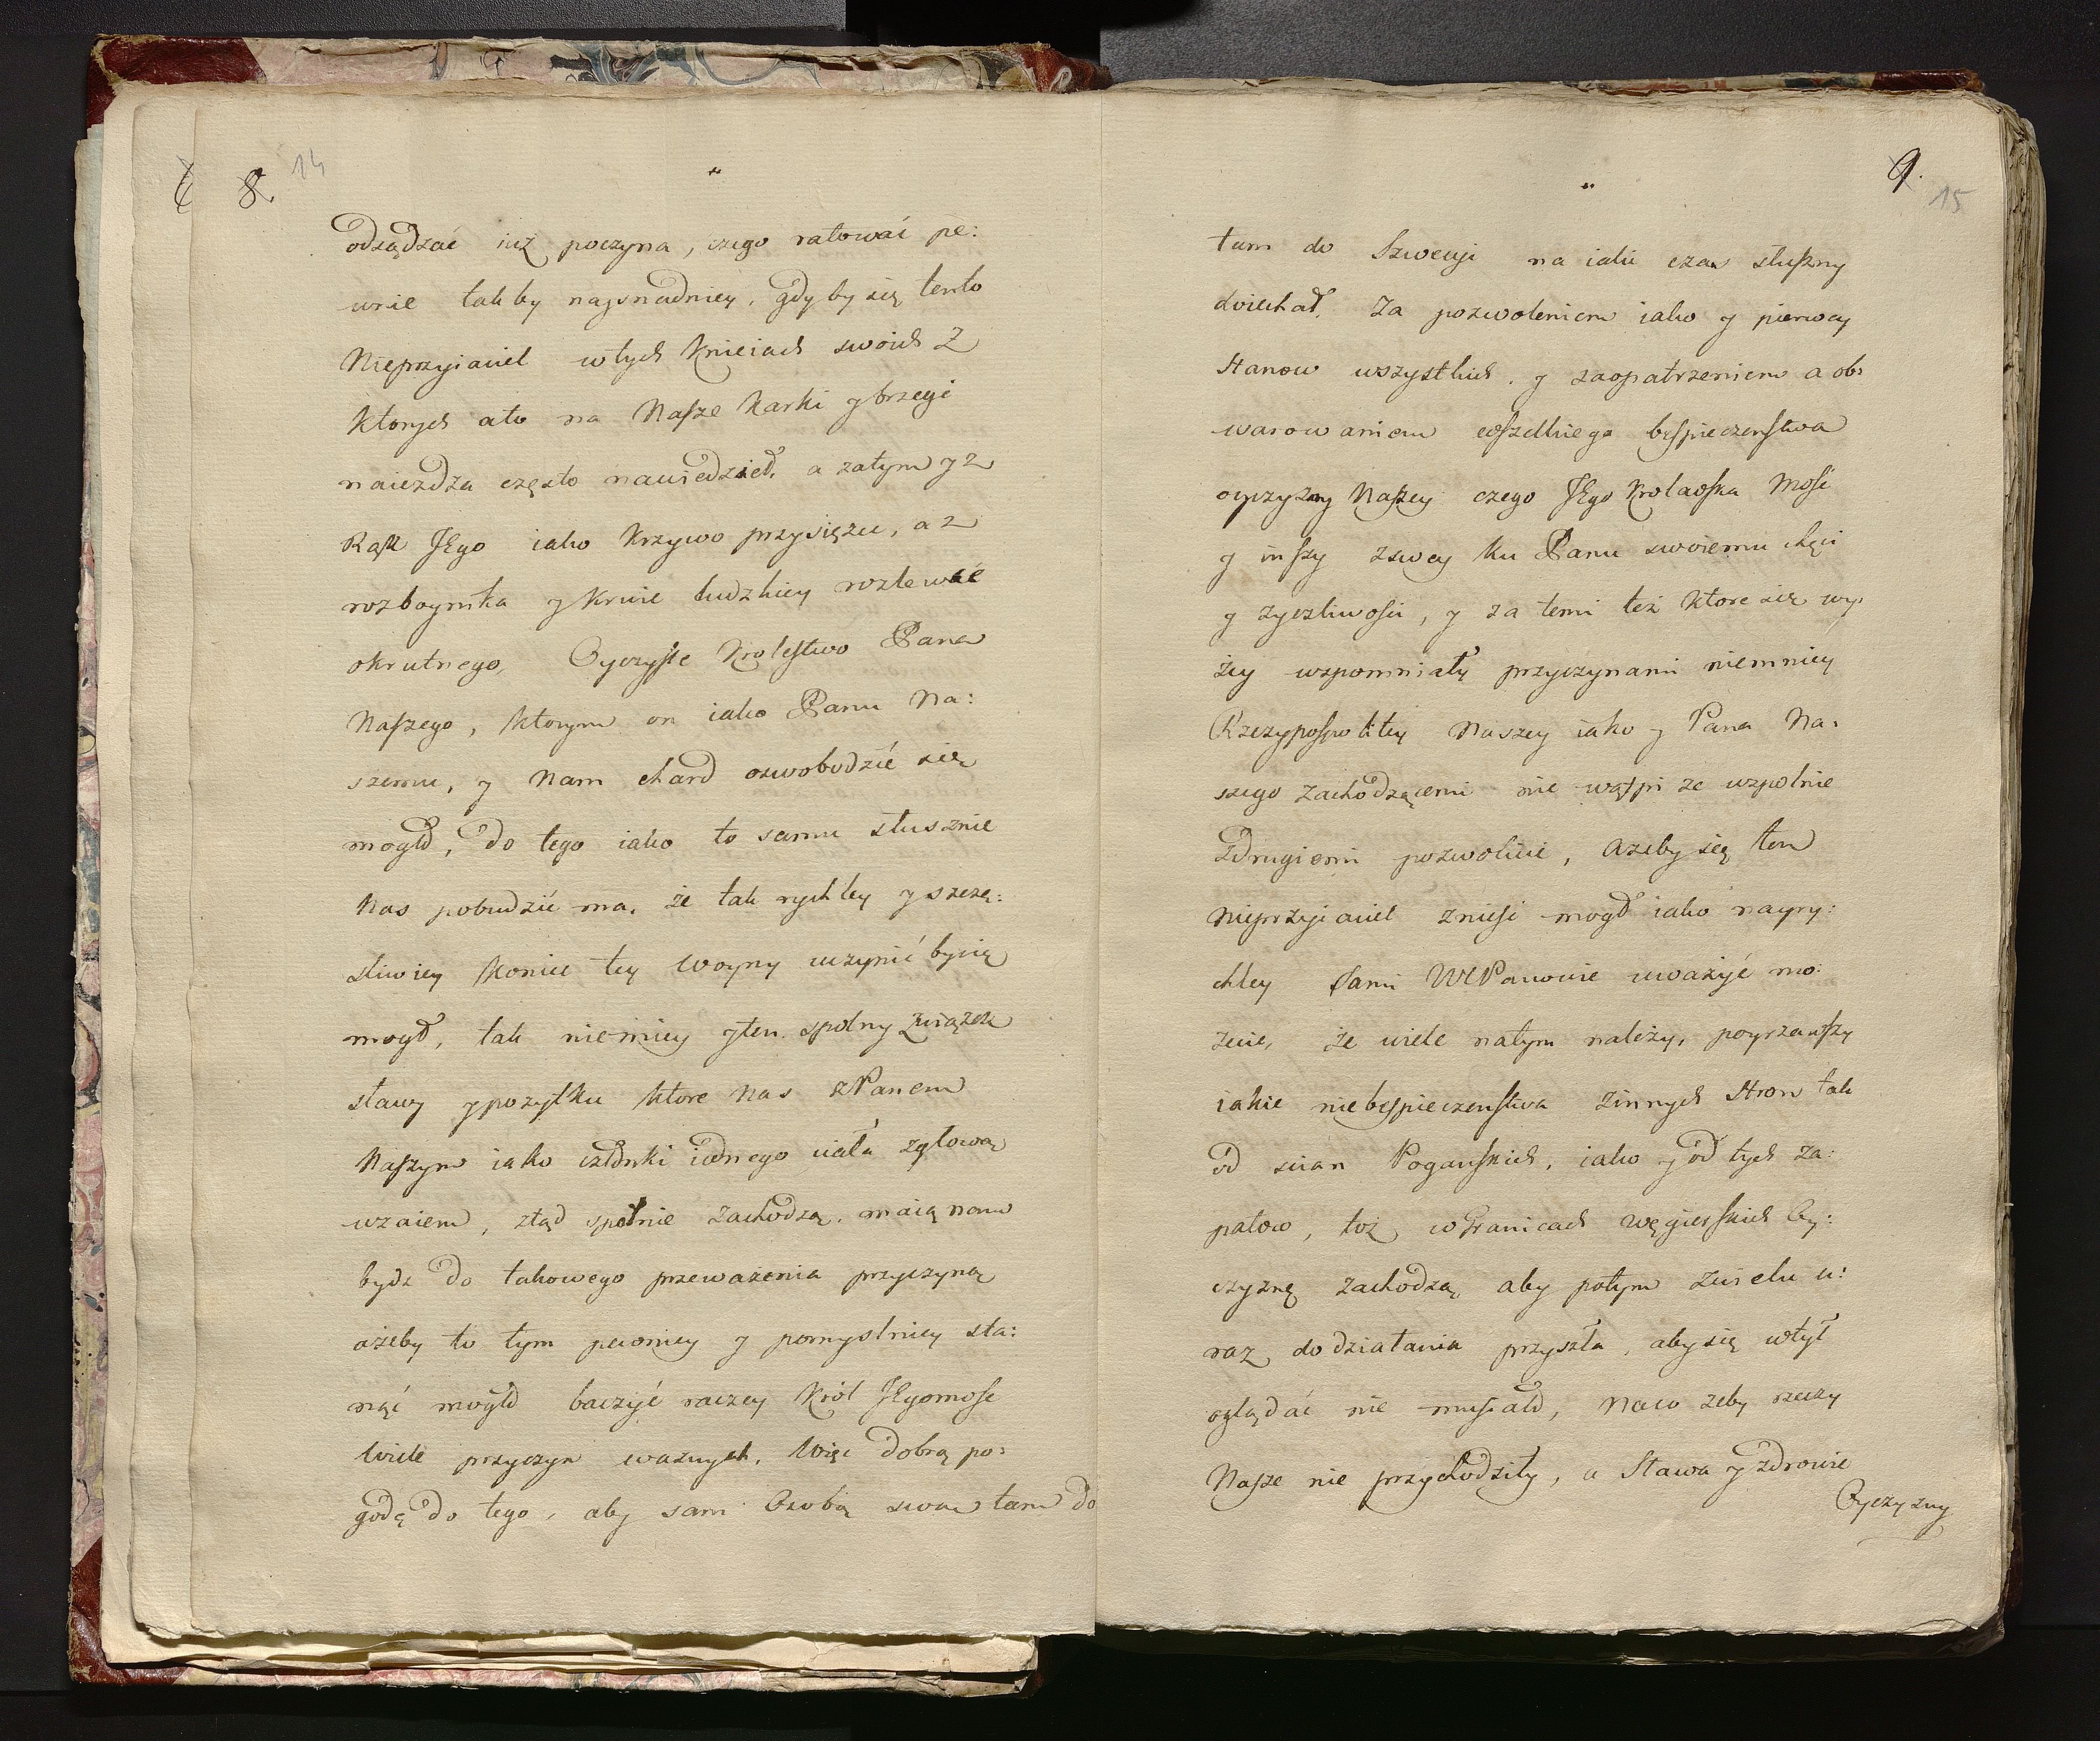 8. 14
odsądzać iuż poczyna, czego ratować pe:
wnie takby naysnadniey, gdyby się tento
Nieprzyiaciel wtych Knieiach swoich Z
Ktorych ato na Nasze Karki y brzegi
naiezdza często nawiedzieł, a zatym y z
Rąk JEgo iako Krzywo przysięzcu, a z
rozboynika y Krwie ludzkiey rozlewce
okrutnego, Oyczyste Krolestwo Pana
Naszego, ktorym on iako Panu Na:
szemu, y Nam chard oswobodzić się
mogło, Do tego iako to samu słusznie
Nas pobudzić ma, że tak rychley y szczę:
sliwiey Koniec tey Woyny uczynić bysię
mogł, tak niemniey yten spolny Związek
sławy ypożytku ktore Nas zPanem
Naszym iako członki iednego ciała zgłową
wzaiem, ztąd społnie zachodzą, maią nam
bydz do takowego przeważenia przyczyną
ażeby to tym pewniey y pomyslniey sta:
nąć mogło baczyć raczey Król JEgomość
Wiele przyczyn waznych, Więc Dobrą po:
godę do tego, aby sam Osobą swą tam do
9. 15
tam do Szwecyi na iaki czas słuszny
doiechał. Za pozwoleniem iako y pierwey
Stanow wszystkich, y zaopatrzeniem a ob:
warowaniem wszelkiego bespieczenstwa
oyczyzny Naszey czego JEgo Krolewska Mość
y inszy zswey ku Panu swoiemu chęci
y zyczliwosci, y za temi też ktore się wy:
żey wspomniały przyczynami niemniey
Rzeczypospolitey Naszey iako y Pana Na:
szego zachodzącemi nie wątpi ze wzpolnie
Zdrugiemi pozwolicie, ażeby się ten
nieprzyiaciel zniesć mogł iako nayry:
chley Sami WPanowie uważyć mo:
żecie, że wiele natym należy, poyrzawszy
iakie niebespieczenstwa zinnych Stron tak
od scian Poganskich, iako y od tych za:
pałow, toż wGranicach węgierskich Oy:
czyznę zachodzą, aby potym zwielu u:
raz do działania przyszła, aby się wtył
oglądać nie musiało, Naco żeby rzeczy
Nasze nie przychodziły, a Sława y zdrowie
Oyczyzny